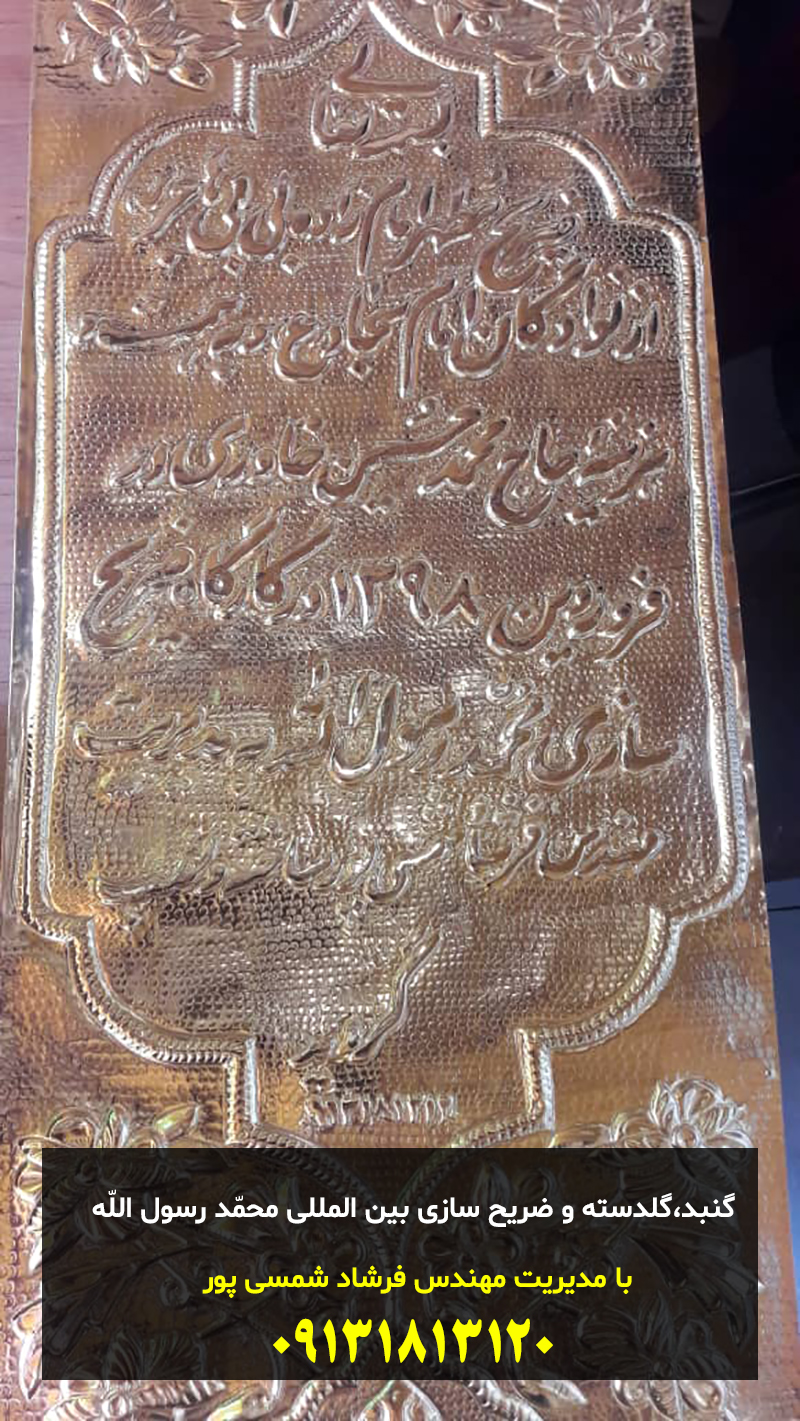 بسمه تعالی
ضریح مطهر امام زاده بی بی
از نوادگان امام سجاد (ع) در به
هزینه حاج محمد حسین خاوری در
فروردین ۱۳۹۸ در کارگاه ضریح
سازی محمد رسول الله به مدیریت
مهندس فرشاد شمسی پور ساخته
گردید
گنبد،گلدسته و ضریح سازی بین المللی محمّد رسول اللّه
با مدیریت مهندس فرشاد شمسی پور
۰۹۱۳۱۸۱۳۱۲۰